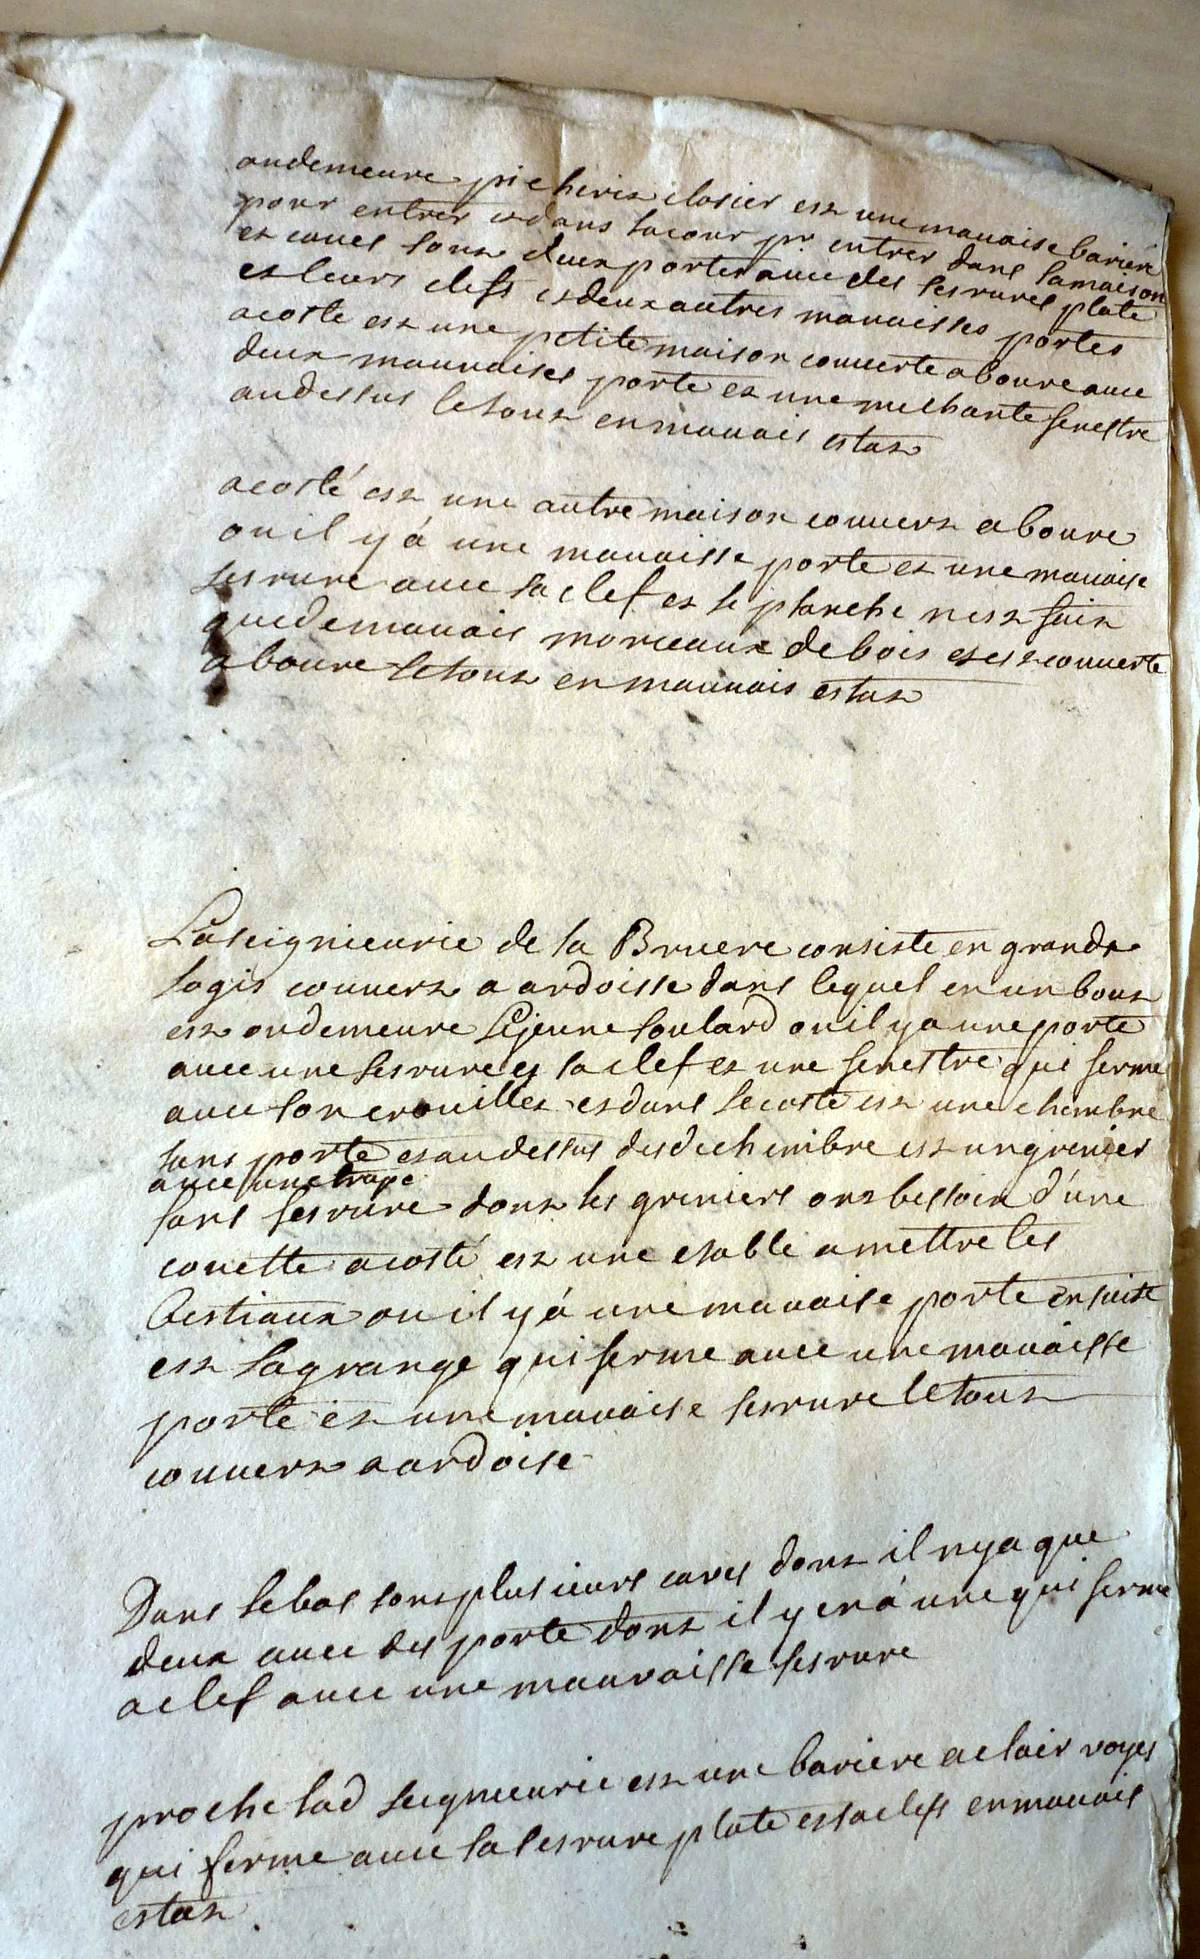 ou demeure picherit closier est une mauaise bariere
pour entrer et dans la cour pr entrer dans la maison
et caues sont deux portes auec des serrures plate
et leurs clefs et deux autres mauaisses portes
a coste est une petite maison couuerte a boure auec
deux mauuaises porte et une mechante fenestre
au dessus le tout en mauais estat
a costé est une autre maison couuert a boure
ou il y á une mauaisse porte et une mauaise
serrure auec sa clef et le planche nest fait
que de mauais morceaux de bois et est couuerte
a boure le tout en mauuais estat
La seignieurie de la Bruere consiste en grand
logis couuert a ardoisse dans lequel en un bout
est ou demeure Lejeune Soulard ou il y a une porte
auec une serrure et sa clef et une fenestre qui ferme
auec son erouillet et dans le coste est une chambre
sans porte et au dessus desd chembre est un grenier
auec une trape
sans serrure dont les greniers ont bessoin d'une
couette a costé est une etable a mettre les
bestiaux ou il y á une mauaise porte ensuite
est la grange qui ferme auec une mauaisse
porte et une mauaise serrure le tout
couuert a ardoise
Dans le bas sont plusieurs caues dont il ny a que
deux auec des porte dont il y en á une qui ferme
a clef auec une mauvaisse serrure
proche lad seigneurie est une bariere a clair voyes
qui ferme auec sa serrure plate et sa clefs en mauais
estat